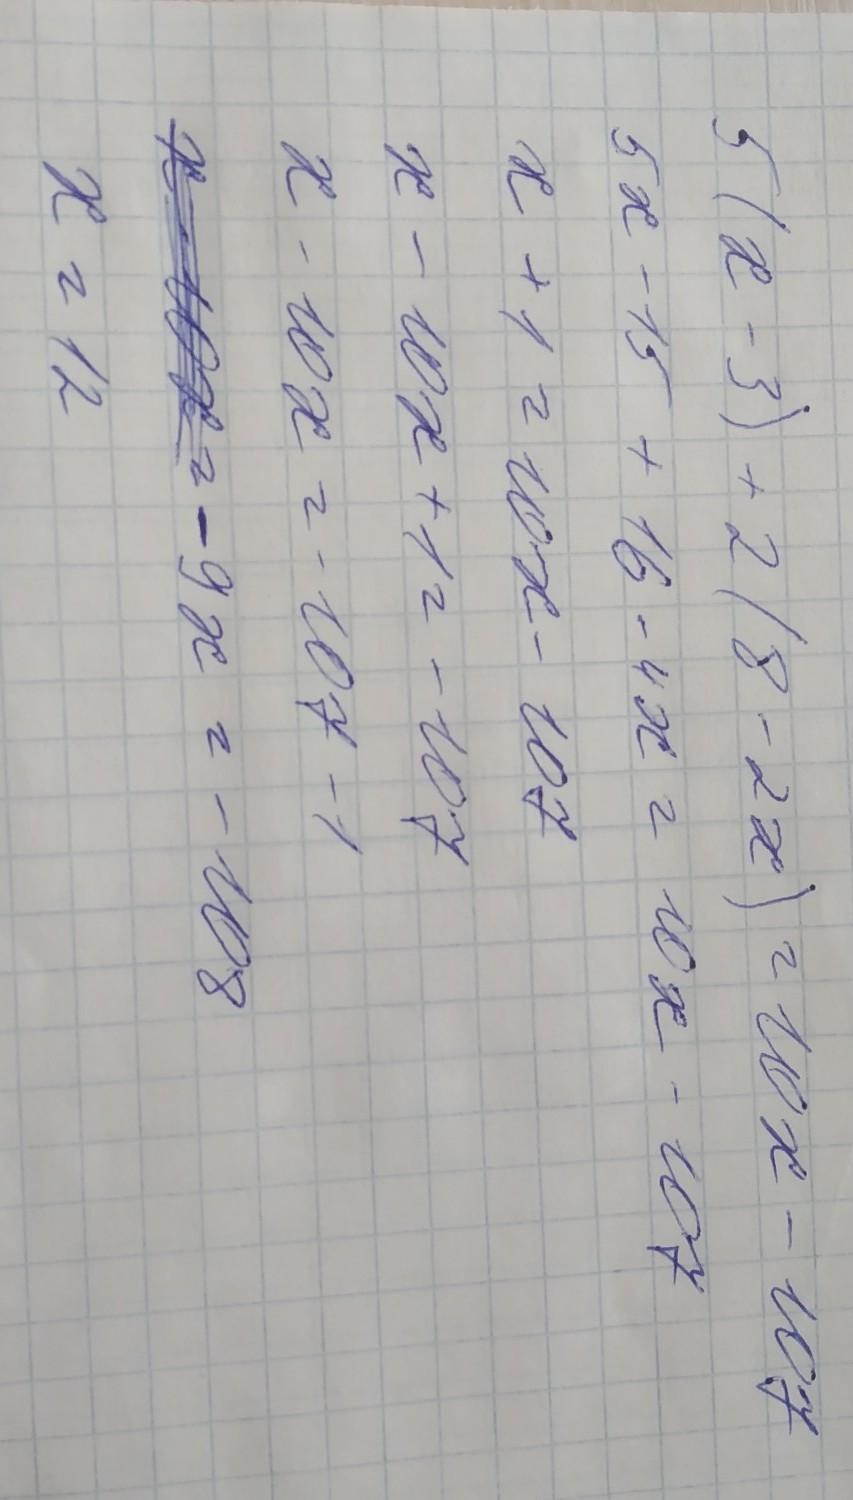 5(x-3)+2(8-2x)=10x-107
5x-15+16-4x=10x-107
x+1=10x-107
x-10x+1=-107
x-10x=-107-1
=-9x=-108
x=12